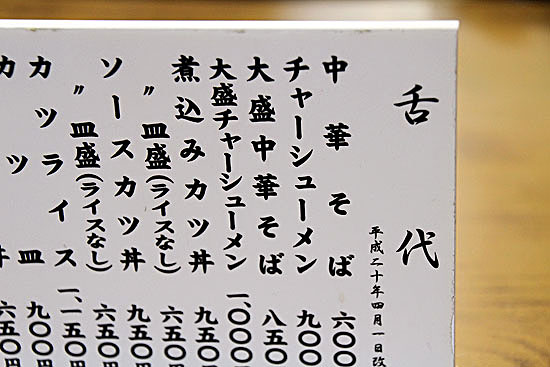 舌代
平成二十年四月一日改
中華そば 六〇〇
チャーシューメン 九〇〇
大盛中華そば 八五〇
大盛チャーシューメン 一、〇〇〇
煮込みカツ丼 九五〇円
〃皿盛(ライスなし) 六五〇円
ソースカツ丼 九五〇円
〃皿盛(ライスなし) 六五〇円
カツライス 一、一五〇円
カツ皿 九〇〇円
丼 六五〇